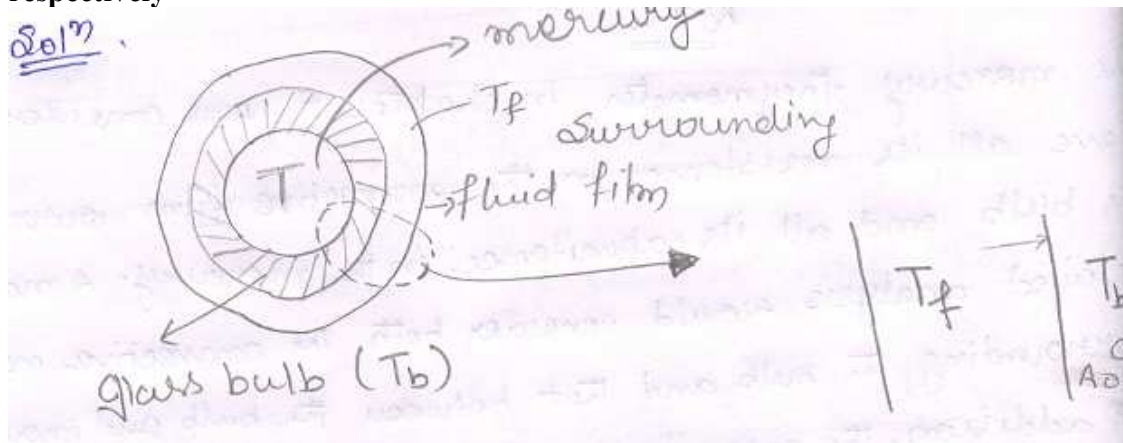 respectively
Soln.
mercury
Tf
Surrounding
T
fluid film
Tf
Tb
glass bulb (Tb)